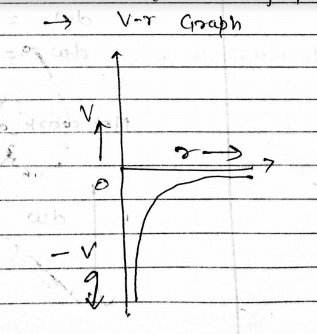 → V-r Graph
V
r →
O
- V